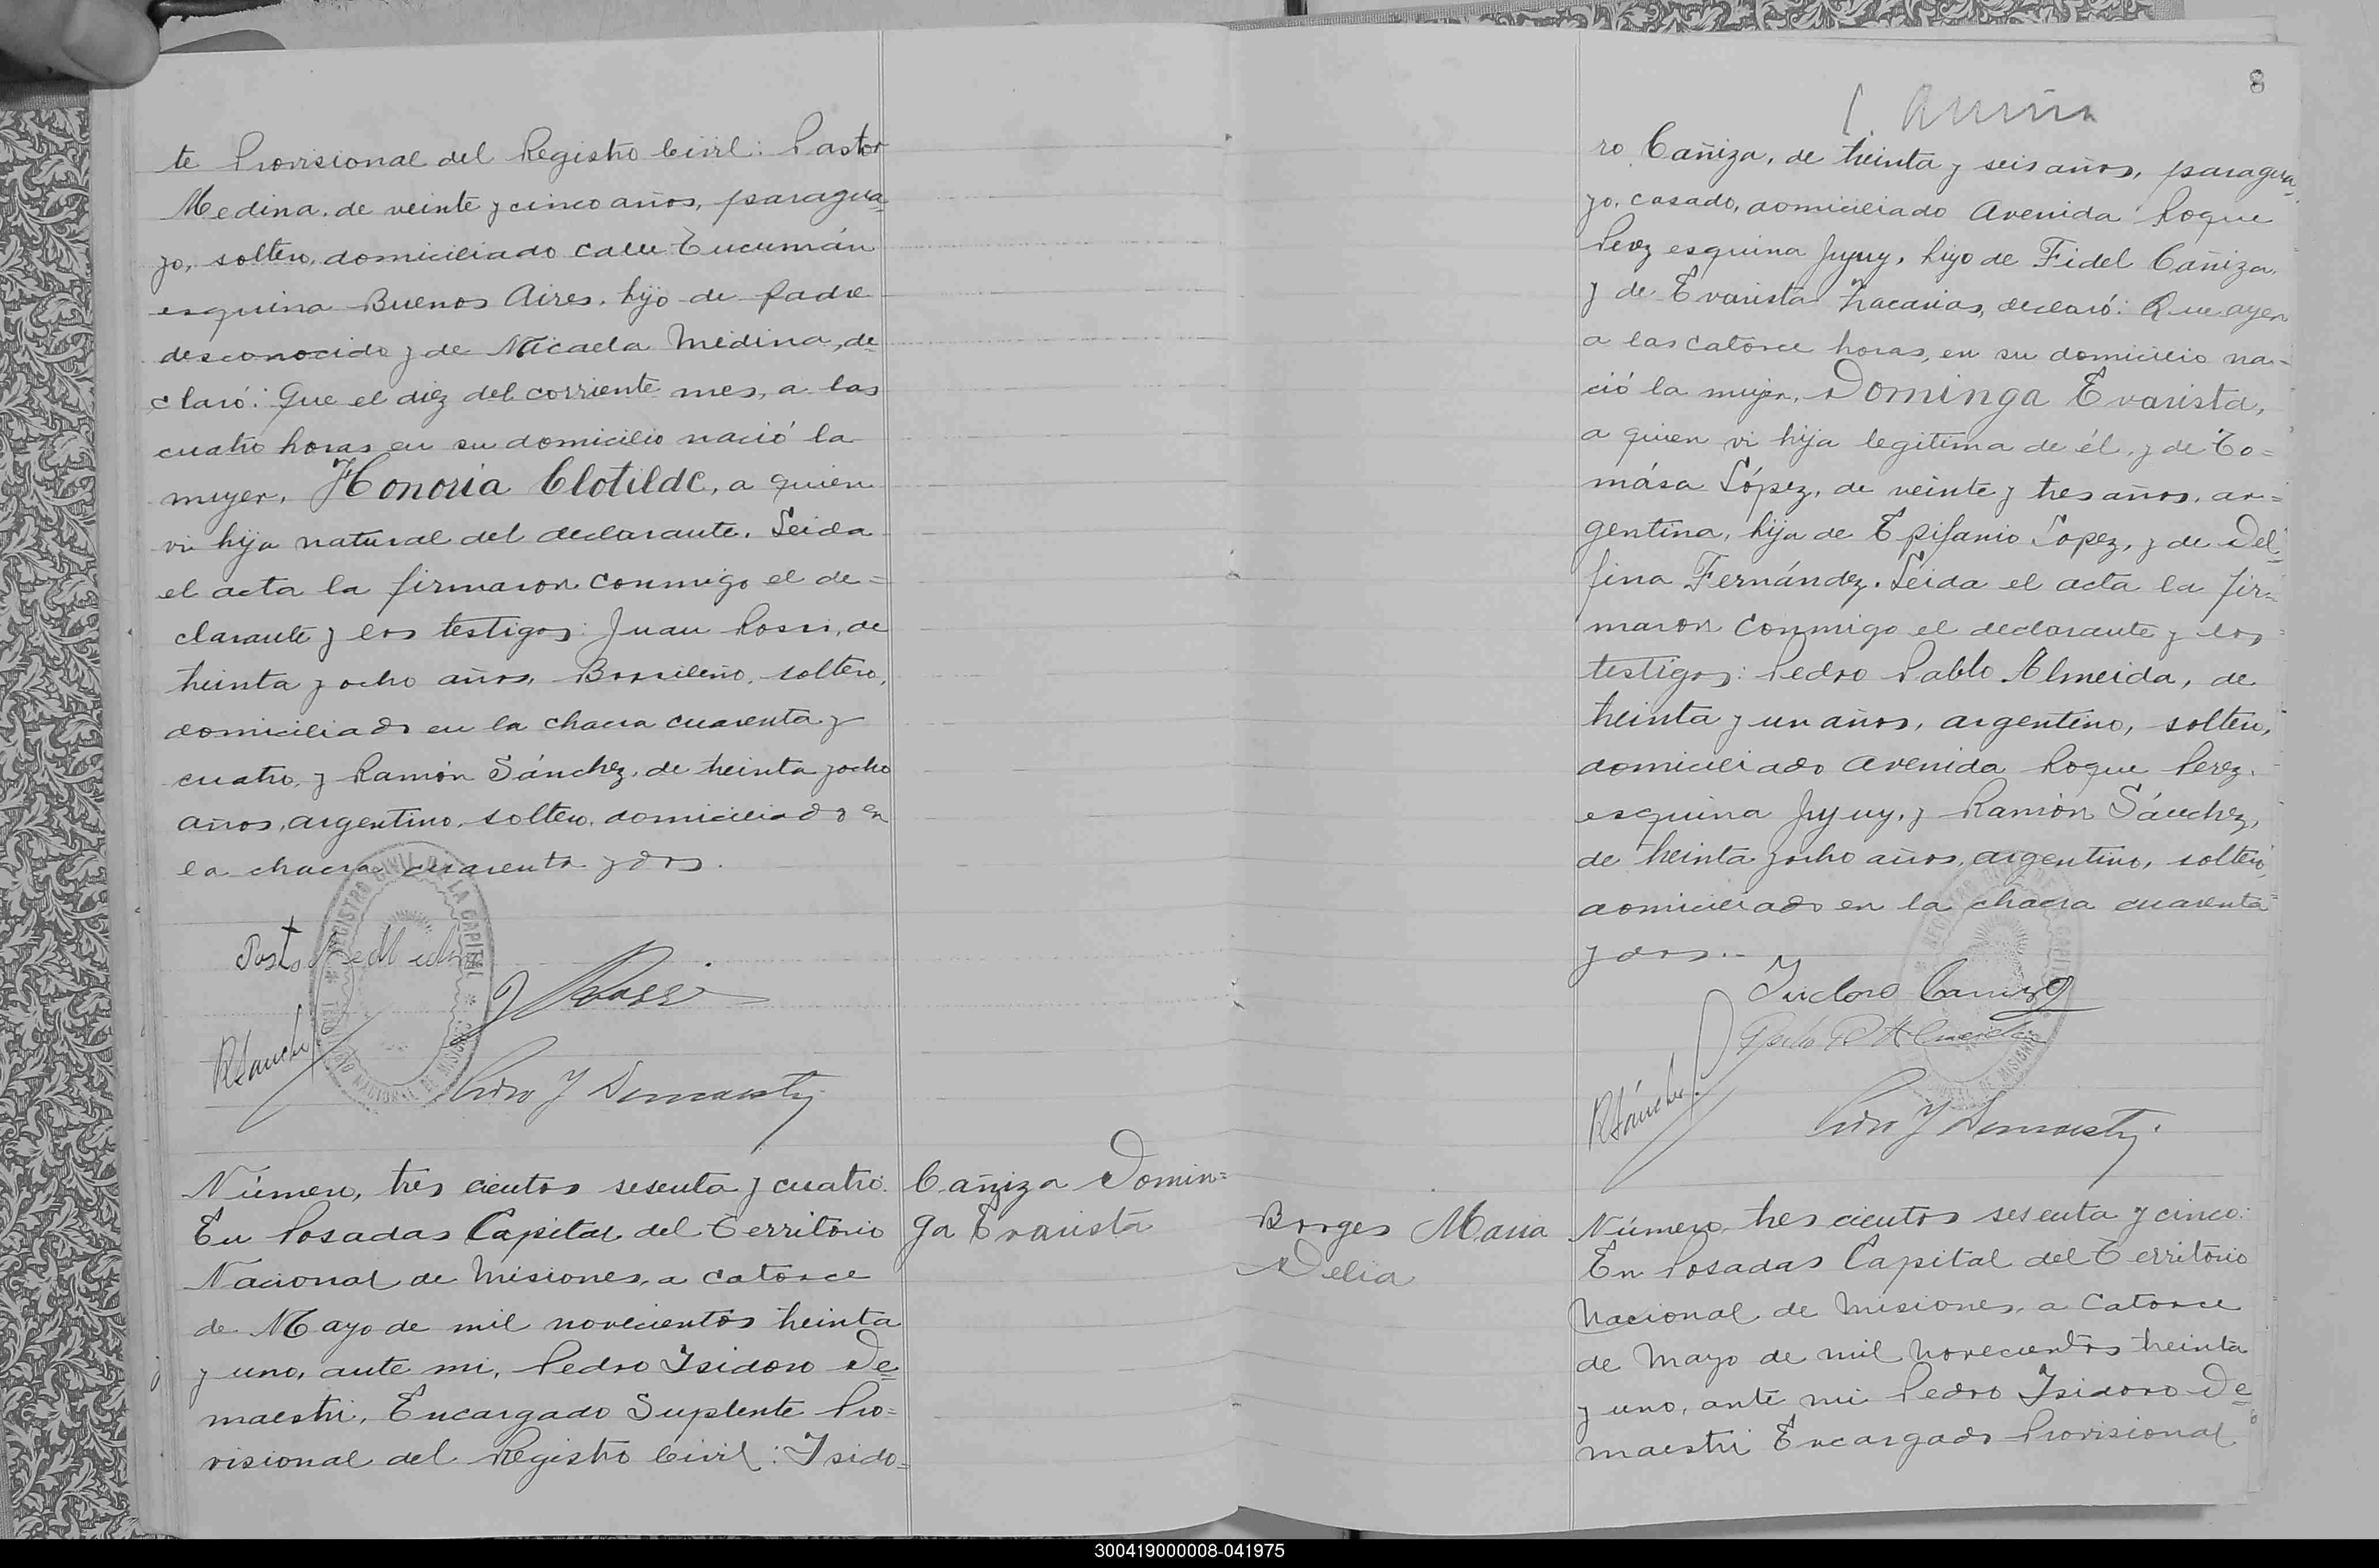 te Provisional del Registro Civil: Pastor
Medina, de veinte y cinco años, paragua=
yo, soltero, domiciliado calle Tucumán
esquina Buenos Aires, hijo de padre
desconocido y de Micaela Medina, de=
claró: Que el diez del corriente mes, a las
cuatro horas en su domicilio nació la
mujer, Honoria Clotilde, a quien
vi hija natural del declarante. Leida
el acta la firmaron conmigo el de=
clarante y los testigos: Juan Rossi, de
treinta y ocho años, Brasileño, soltero,
domiciliado en la chacra cuarenta y
cuatro, y Ramón Sánchez, de treinta y ocho
años, argentino, soltero, domiciliado en
la chacra cuarenta y dos.
REGISTRO CIVIL DE LA CAPITAL
TERRITORIO NACIONAL DE MISIONES
J Rossi
RSanchez
Pedro Y Demaestri
Número, tres cientos sesenta y cuatro.
En Posadas Capital del Territorio
Nacional de Misiones, a catorce
de Mayo de mil novecientos treinta
y uno, ante mi, Pedro Isidoro De=
maestri, Encargado Suplente Pro=
visional del Registro Civil: Isido=
Cañiza Domin=
ga Evarista
8
ro Cañiza, de treinta y seis años, paragua=
yo, casado, domiciliado Avenida Roque
Perez esquina Jujuy, hijo de Fidel Cañiza,
y de Evarista Zracarias, declaró: Que ayer
a las catorce horas, en su domicilio na=
ció la mujer, Dominga Evarista,
a quien vi hija legitima de él, y de To=
mása López, de veinte y tres años, ar=
gentina, hija de Epifanio Lopez, y de Del=
fina Fernández. Leida el acta la fir=
maron conmigo el declarante y los
testigos: Pedro Pablo Almeida, de
treinta y un años, argentino, soltero,
domiciliado Avenida Roque Perez
esquina Jujuy, y Ramón Sánchez,
de treinta y ocho años, argentino, soltero,
domiciliado en la chacra cuarenta
y dos.-
Isidoro Cañiza
Pedro P Almeida
RSánchez
Pedro Y Demaestri
Borges Maria
Delia
Número, tres cientos sesenta y cinco:
En Posadas Capital del Territorio
Nacional de Misiones, a catorce
de Mayo de mil novecientos treinta
y uno, ante mi Pedro Isidoro De=
maestri Encargado Provisional
300419000008-041975